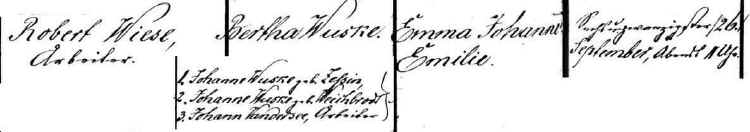 Robert Wiese,
Arbeiter.
Bertha Wuske.
1. Johanne Wuske geb. Zessin
2. Johanne Wuske geb. Weichbrodt
3. Johann Vandersee, Arbeiter
Emma Johanne
Emilie.
Sechsundzwanzigster /26.
September, Abends 11 Uhr.